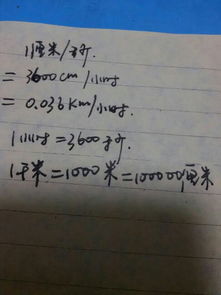 1厘米/秒.
= 3600cm/小时
= 0.036Km/小时.
1小时=3600秒.
1千米=1000米=100000厘米